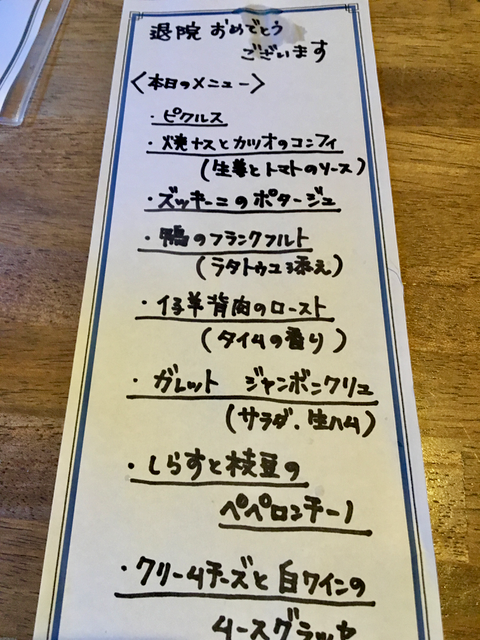 退院 おめでとう
ございます
〈本日のメニュー〉
・ピクルス
・焼ナスとカツオのコンフィ
(生姜とトマトのソース)
・ズッキーニのポタージュ
・鴨のフランクフルト
(ラタトゥユ添え)
・仔羊背肉のロースト
(タイムの香り)
・ガレット ジャンボンクリュ
(サラダ・生ハム)
・しらすと枝豆の
ペペロンチーノ
・クリームチーズと白ワインの
ムースグラッセ